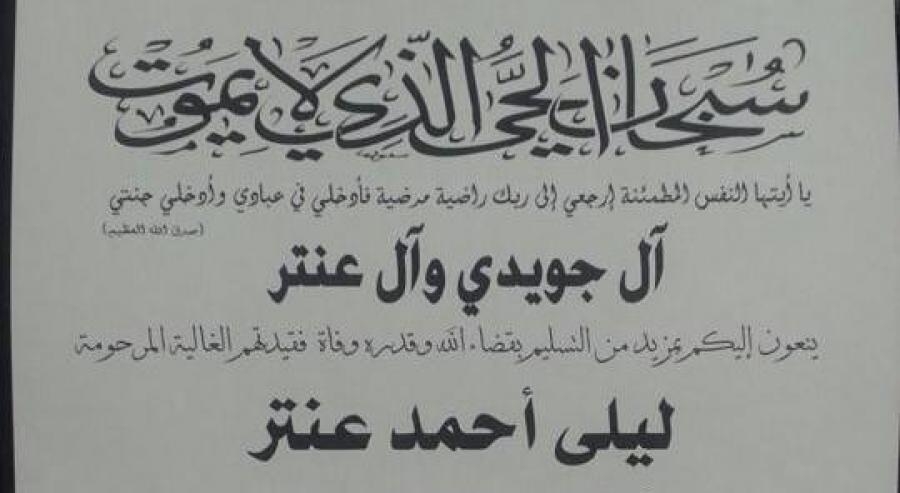 سُبْحَانَ الحَيِّ الَّذِي لَا يَمُوتُ
يا أيتها النفس المطمئنة إرجعي إلى ربك راضية مرضية فأدخلي في عبادي وأدخلي جنتي
(صدق الله العظيم)
آل جويدي وآل عنتر
ينعون إليكم بمزيد من التسليم بقضاء الله وقدره وفاة فقيدتهم الغالية المرحومة
ليلى أحمد عنتر